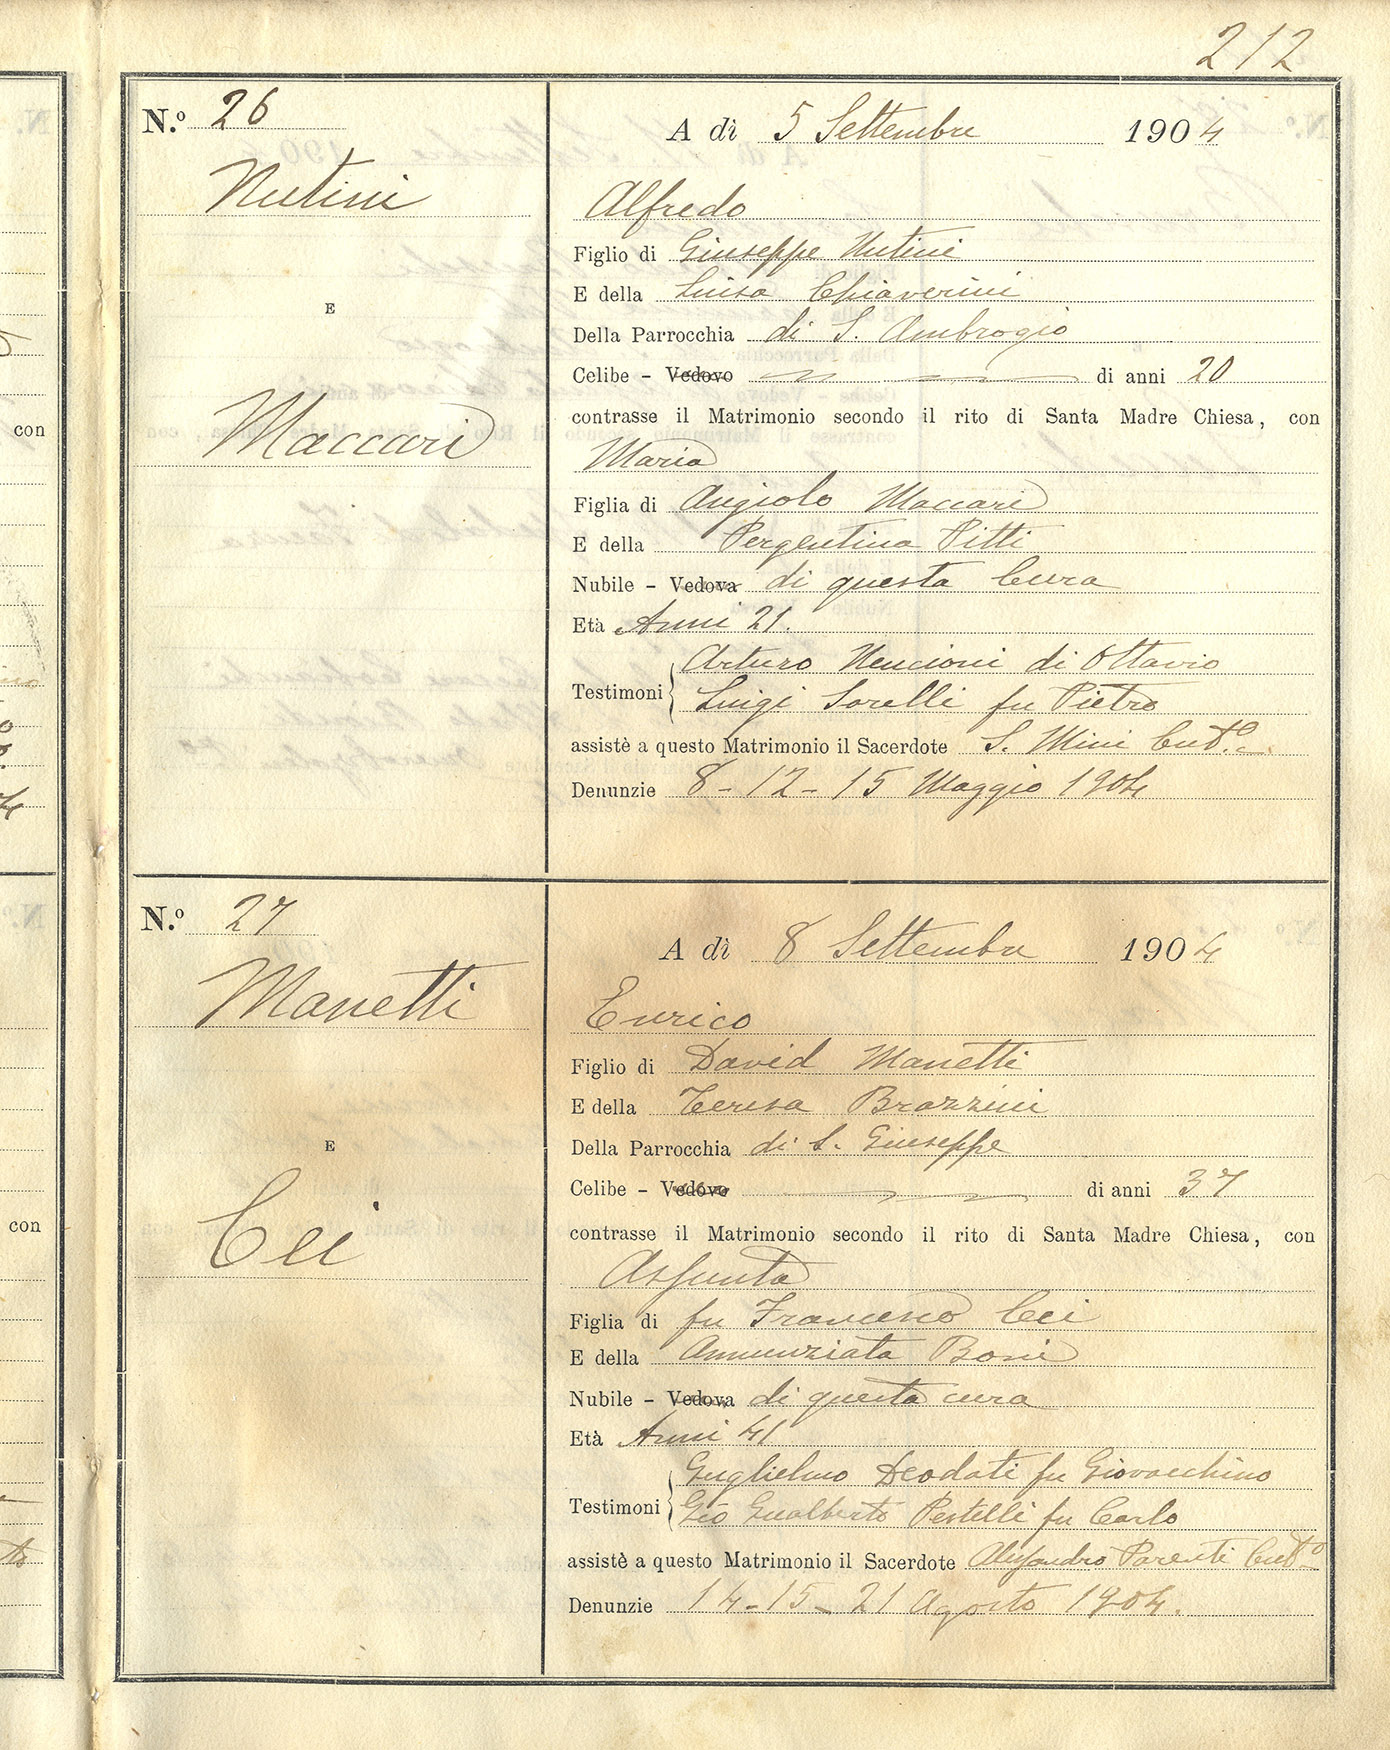 212
N.º 26
A dì 5 Settembre 1904
Nutini
Alfredo
Figlio di Giuseppe Nutini
E della Luisa Chiaverini
E
Della Parrocchia di S. Ambrogio
Celibe – Vedovo di anni 20
contrasse il Matrimonio secondo il rito di Santa Madre Chiesa, con
Maccari
Maria
Figlia di Angiolo Maccari
E della Pergentina Pitti
Nubile – Vedova di questa Cura
Età Anni 21.
Arturo Nencioni di Ottavio
Testimoni
Luigi Sorelli fu Pietro
assistè a questo Matrimonio il Sacerdote S. Mini
Denunzie 8 - 12 - 15 Maggio 1904
N.º 27
A dì 8 Settembre 1904
Manetti
Enrico
Figlio di David Manetti
E della Teresa Brazzini
E
Della Parrocchia di S. Giuseppe
Celibe – Vedovo di anni 37
Cei
contrasse il Matrimonio secondo il rito di Santa Madre Chiesa, con
Assunta
Figlia di fu Francesco Cei
E della Annunziata Boni
Nubile – Vedova di questa cura
Età Anni 41
Guglielmo Deodati fu Giovacchino
Testimoni
Gio Gualberto Pestelli fu Carlo
assistè a questo Matrimonio il Sacerdote Alessandro Parenti
Denunzie 14 - 15 - 21 Agosto 1904.
con
con